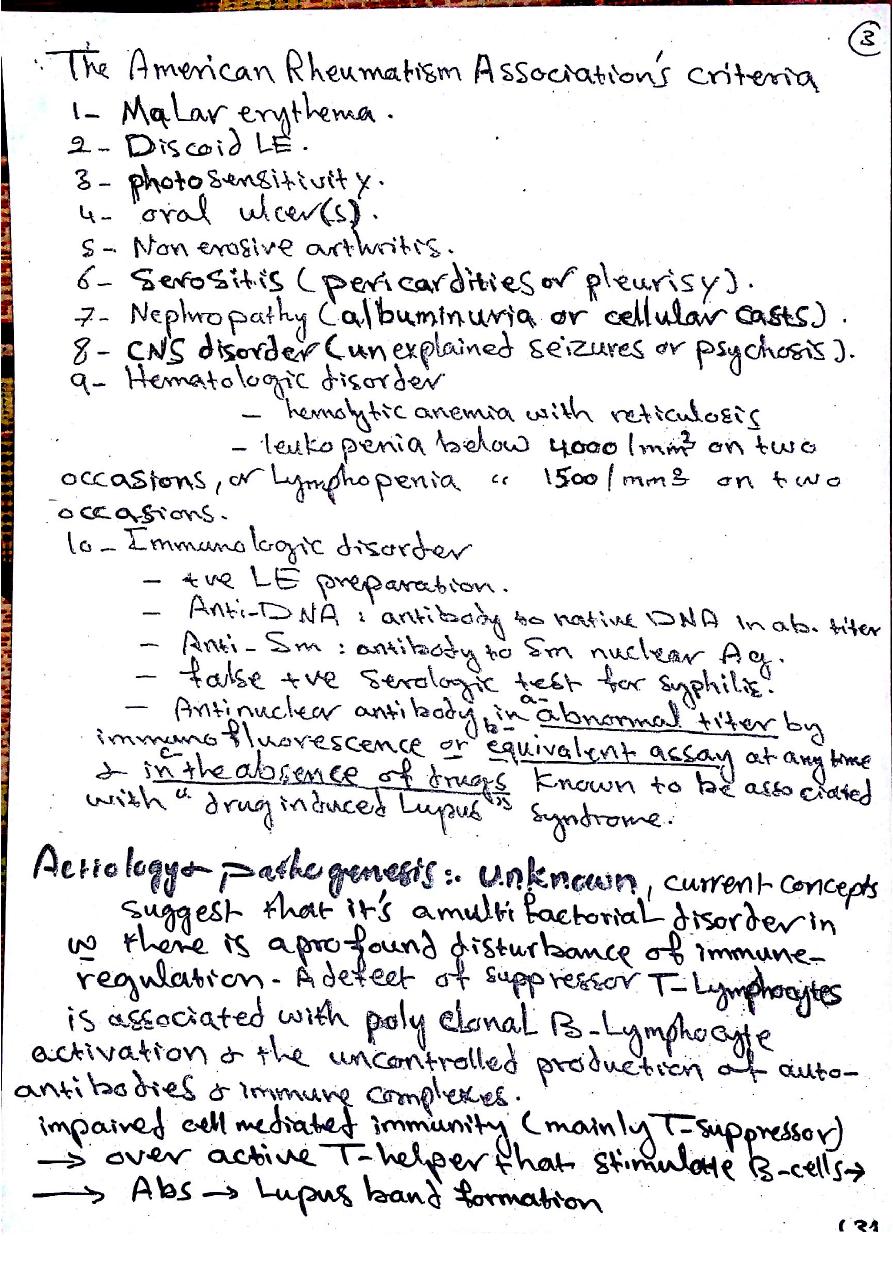 3
The American Rheumatism Association's criteria
1- Malar erythema.
2- Discoid LE.
3- photosensitivity.
4- oral ulcer(s).
5- Non erosive arthritis.
6- Serositis (pericardities or pleurisy).
7- Nephropathy (albuminuria or cellular casts).
8- CNS disorder (unexplained seizures or psychosis).
9- Hematologic disorder
- hemolytic anemia with reticulosis
- leukopenia below 4000/mm3 on two
occasions, or Lymphopenia " 1500/mm3 on two
occasions.
10- Immunologic disorder
- +ve LE preparation.
- Anti-DNA: antibody to native DNA in ab. titer
- Anti-Sm: antibody to Sm nuclear Ag.
- false +ve serologic test for syphilis.
- Antinuclear antibody, in a- abnormal titer by
immunofluorescence or b- equivalent assay at any time
& c- in the absence of drugs known to be associated
with "drug induced Lupus" syndrome.
Aetiology & pathogenesis:. unknown, current concepts
suggest that it's a multifactorial disorder in
w there is a profound disturbance of immune-
regulation. A defect of suppressor T-Lymphocytes
is associated with poly clonal B-Lymphocyte
activation & the uncontrolled production of auto-
antibodies & immune complexes.
impaired cell mediated immunity (mainly T-suppressor)
→ over active T-helper that stimulate B-cells →
→ Abs → Lupus band formation